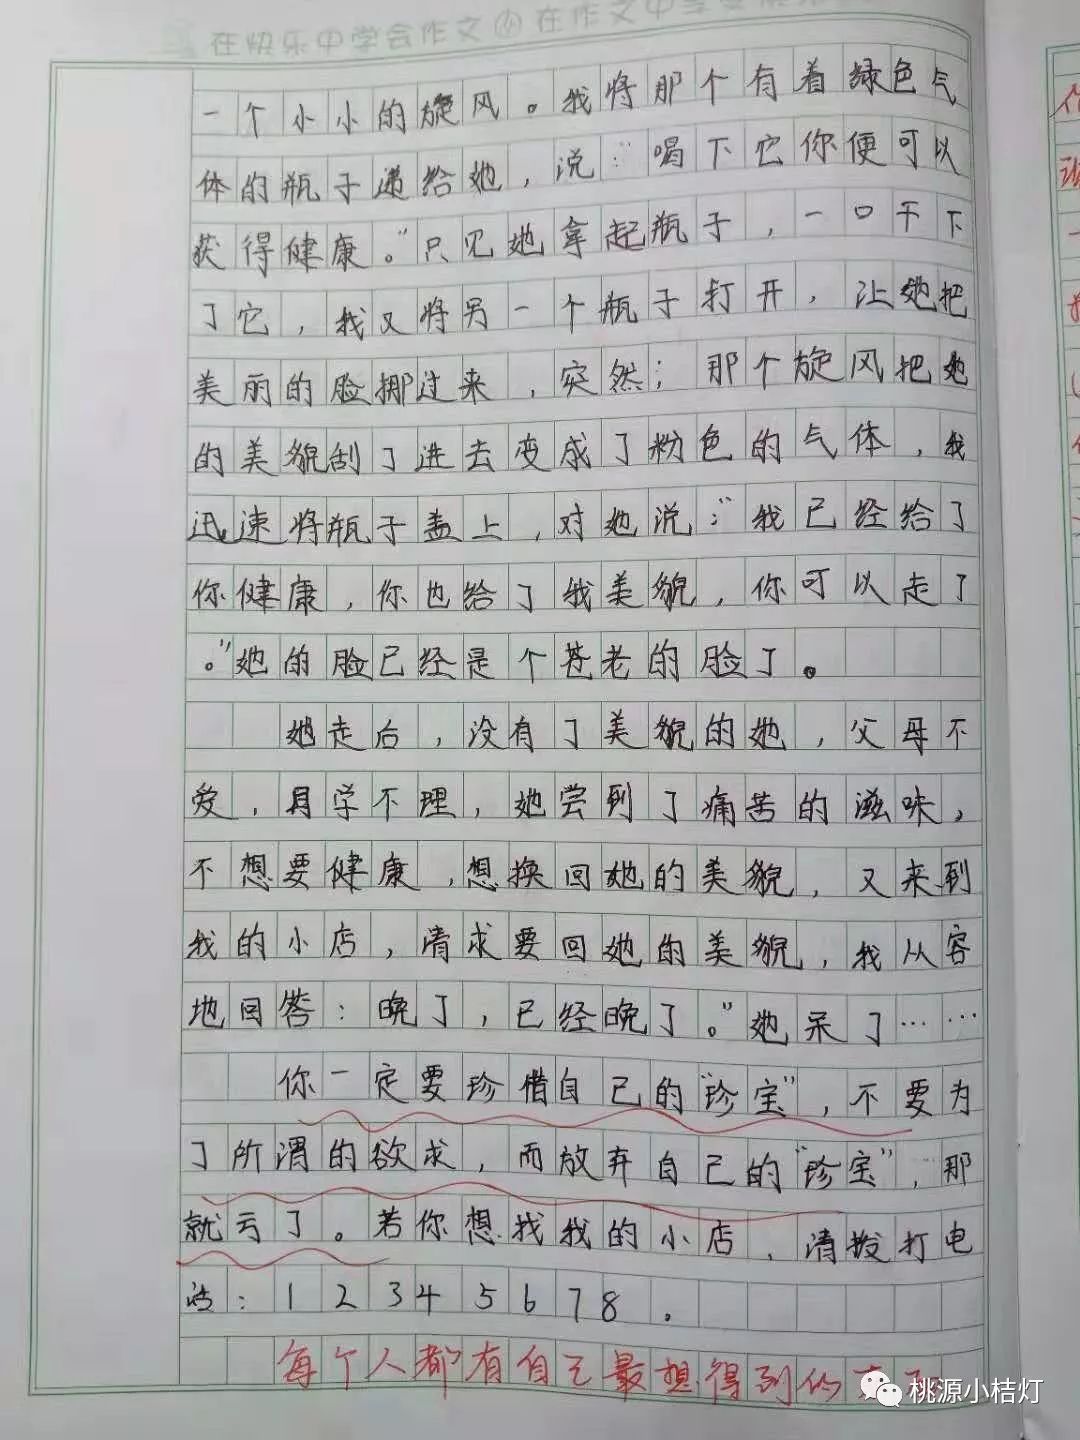 在快乐中学会作文 在作文中学会
一个小小的旋风。我将那个有着绿色气
体的瓶子递给她，说：“喝下它你便可以
获得健康。”只见她拿起瓶子，一口干下
了它，我又将另一个瓶子打开，让她把
美丽的脸挪过来，突然；那个旋风把她
的美貌刮了进去变成了粉色的气体，我
迅速将瓶子盖上，对她说：“我已经给了
你健康，你也给了我美貌，你可以走了
。”她的脸已经是个苍老的脸了。
她走后，没有了美貌的她，父母不
爱，同学不理，她尝到了痛苦的滋味，
不想要健康，想换回她的美貌，又来到
我的小店，请求要回她的美貌，我从容
地回答：晚了，已经晚了。”她呆了……
你一定要珍惜自己的“珍宝”，不要为
了所谓的欲求，而放弃自己的“珍宝”，那
就亏了。若你想找我的小店，请拨打电
话：12345678。
每个人都有自己最想得到的
桃源小桔灯